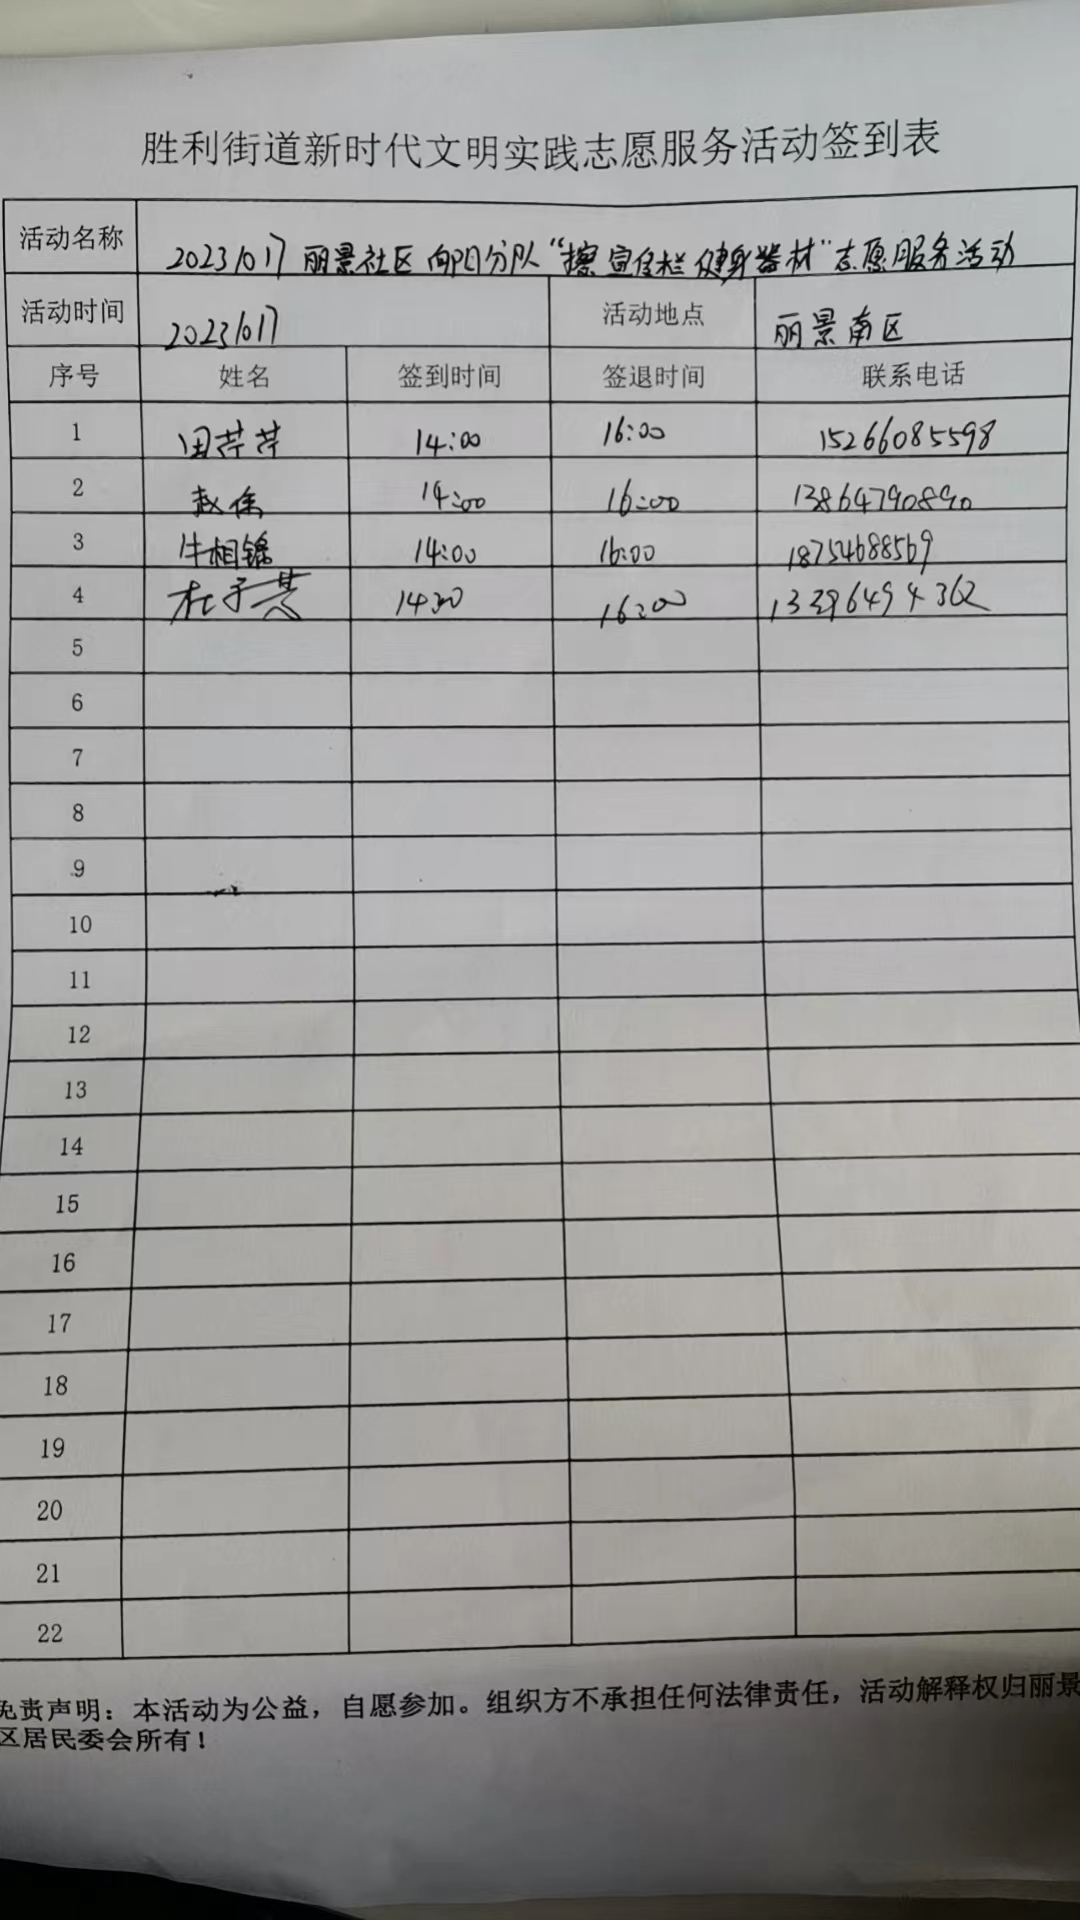 胜利街道新时代文明实践志愿服务活动签到表
活动名称 20231017丽景社区向阳分队“擦宣传栏健身器材”志愿服务活动
活动时间 20231017 活动地点 丽景南区
序号 姓名 签到时间 签退时间 联系电话
1 田芹芹 14:00 16:00 15266085598
2 赵保 14:00 16:00 13864790890
3 牛相锦 14:00 16:00 18754688569
4 杜子慧 1430 16:00
5
6
7
8
9
10
11
12
13
14
15
16
17
18
19
20
21
22
免责声明：本活动为公益，自愿参加。组织方不承担任何法律责任，活动解释权归丽景
区居民委会所有！